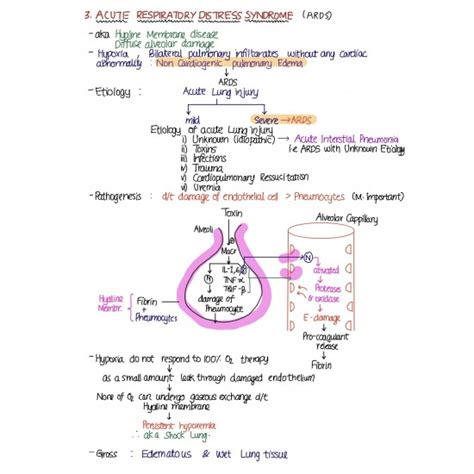 3. ACUTE RESPIRATORY DISTRESS SYNDROME (ARDS)
- aka Hyaline Membrane disease
Diffuse alveolar damage
- Hypoxia, Bilateral pulmonary infiltrates without any cardiac
abnormality : Non Cardiogenic pulmonary Edema
ARDS
- Etiology : Acute Lung injury
mild
Severe → ARDS
Etiology of acute Lung injury
i) Unknown (idiopathic) → Acute Interstial Pneumonia
ii) Toxins
i.e ARDS with Unknown Etiology
iii) Infections
iv) Trauma
v) Cardiopulmonary Ressucitation
vi) Uremia
- Pathogenesis : d/t damage of endothelial cell > Pneumocytes (M. Important)
Toxin
Alveolar Capillary
Alveoli
Macr
N
IL-1,6,8
TNF α
TGF-β
N
activated
Proteases
& oxidase
damage of
Pneumocyte
Hyaline
Membr.
Fibrin
+
Pneumocytes
E-damage
Pro-coagulant
release
Fibrin
- Hypoxia do not respond to 100% O₂ therapy
as a small amount leak through damaged endothelium
None of O₂ can undergo gaseous exchange d/t
Hyaline membrane
Persistent hypoxemia
∴ aka Shock Lung.
- Gross : Edematous & Wet Lung tissue